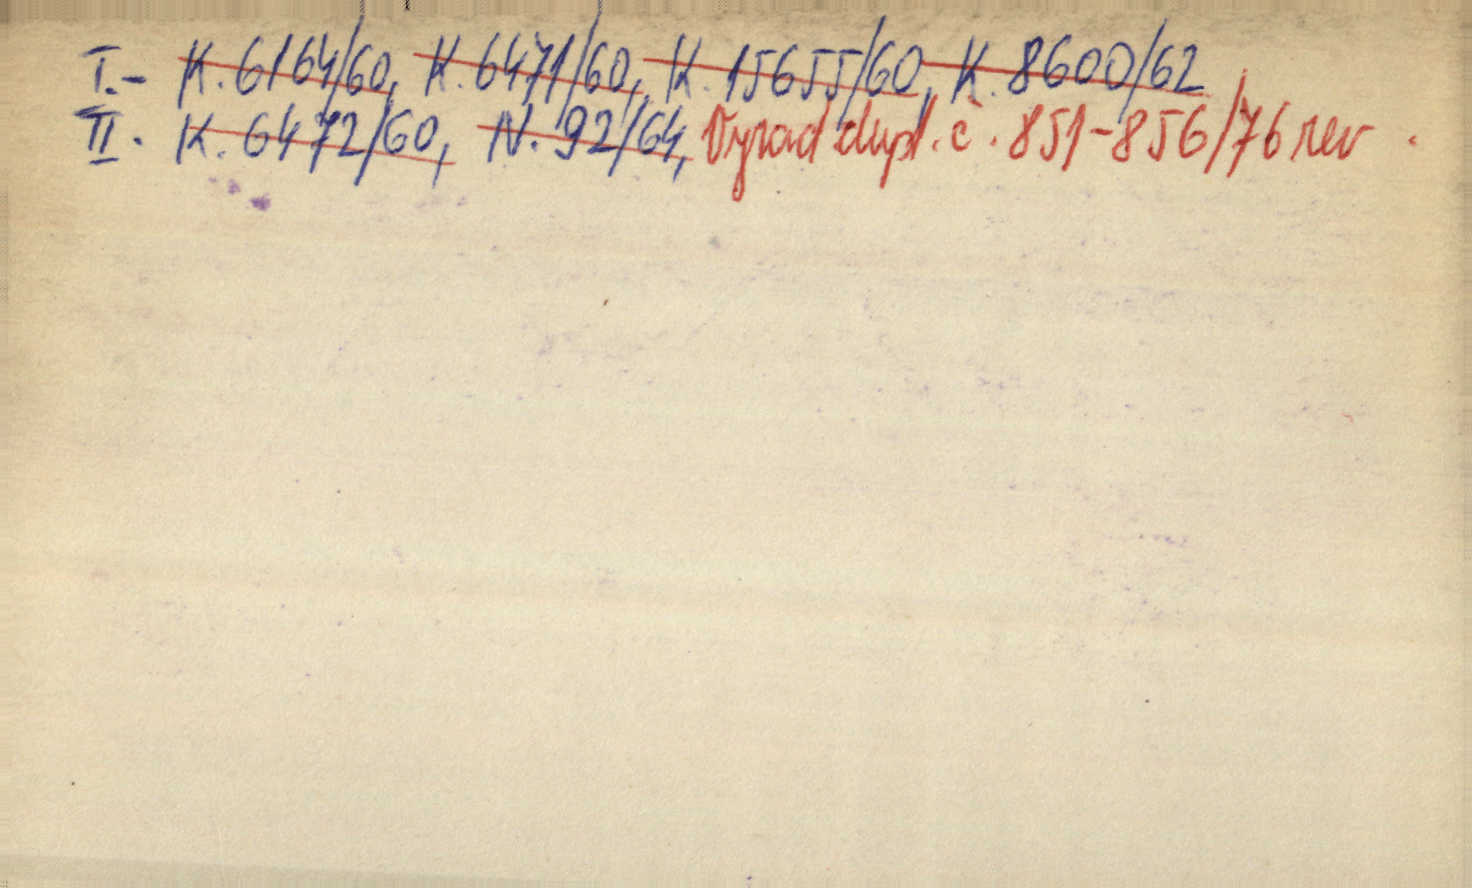 I.- K. 6164/60, K. 6471/60, K. 15655/60, K. 8600/62
II. K. 6472/60, N. 92/64, Vyrad dupl. č. 851-856/76 rev.